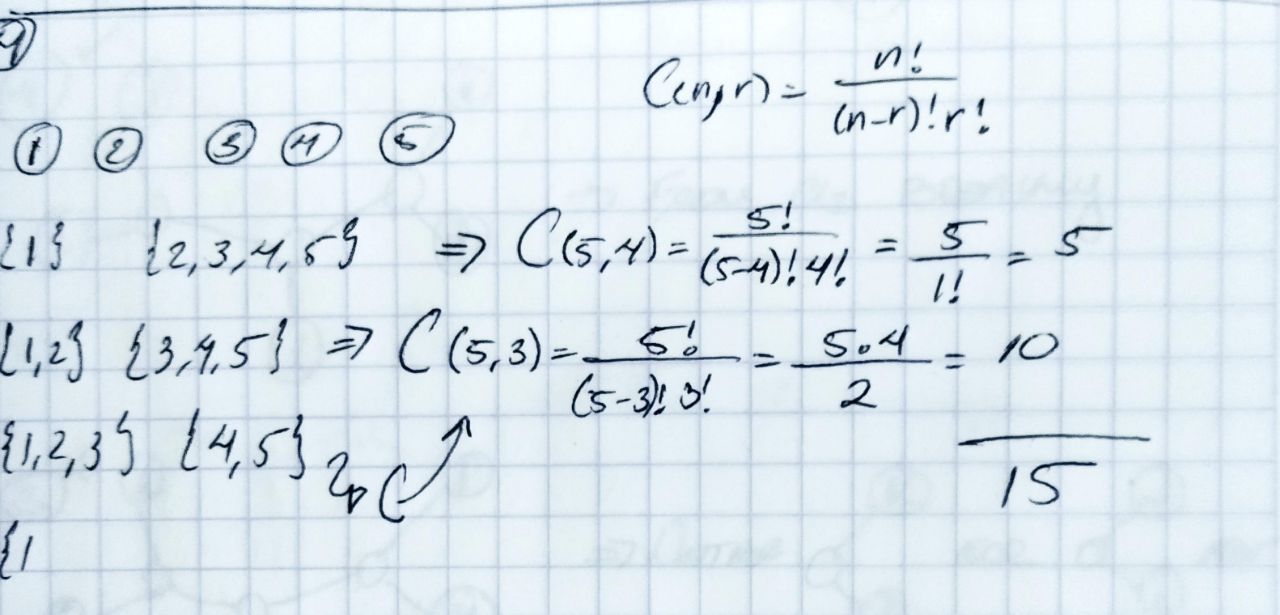 4
C(n,r) = n! / (n-r)! r!
1 2 3 4 5
{1} {2,3,4,5} => C(5,4) = 5! / (5-4)! 4! = 5 / 1! = 5
{1,2} {3,4,5} => C(5,3) = 5! / (5-3)! 3! = 5·4 / 2 = 10
{1,2,3} {4,5}
15
{1